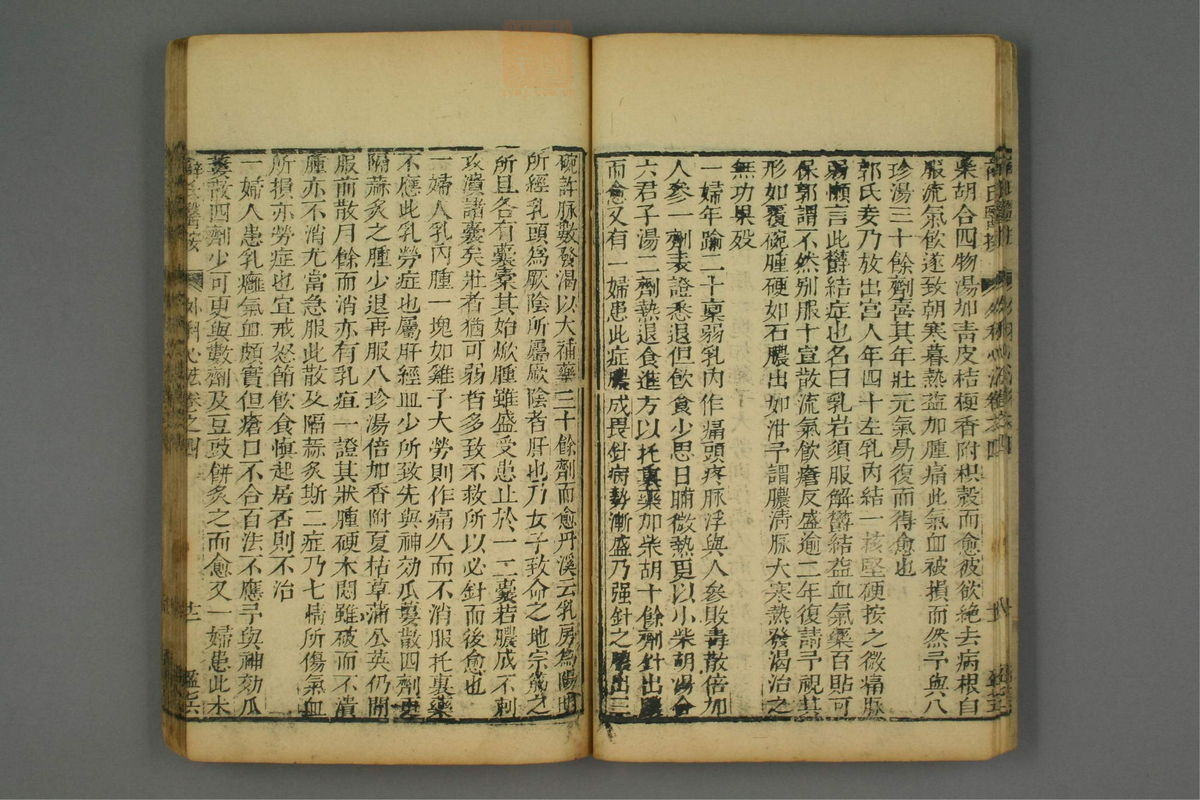 柴胡合四物湯加青皮桔梗香附枳殼而愈彼欲絶去病根自
服流氣飲遂致朝寒暮熱益加腫痛此氣血被損而然予與八
珍湯三十餘劑喜其年壯元氣易復而得愈也
郭氏妾乃放出宮人年四十左乳內結一核堅硬按之微痛脉
弱懶言此欝結症也名曰乳岩須服解欝結益血氣藥百貼可
保郭謂不然別服十宣散流氣飲瘡反盛逾二年復請予視其
形如覆碗腫硬如石膿出如泔予謂膿清脉大寒熱發渴治之
無功果殁
一婦年踰二十稟弱乳內作痛頭疼脉浮與人參敗毒散倍加
人參一劑表證悉退但飲食少思日晡微熱更以小柴胡湯合
六君子湯二劑熱退食進方以托裏藥加柴胡十餘劑針出膿
而愈又有一婦患此症膿成畏針病勢漸盛乃强針之膿出三
碗許脉數發渴以大補藥三十餘劑而愈丹溪云乳房爲陽明
所經乳頭爲厥陰所屬厥陰者肝也乃女子致命之地宗筋之
所且各有囊槖其始焮腫雖盛受患止於一二囊若膿成不刺
攻潰諸囊矣壯者猶可弱者多致不救所以必針而後愈也
一婦人乳內腫一塊如雞子大勞則作痛久而不消服托裏藥
不應此乳勞症也屬肝經血少所致先與神効瓜蔞散四劑更
隔蒜炙之腫少退再服八珍湯倍加香附夏枯草蒲公英仍間
服前散月餘而消亦有乳疽一證其狀腫硬木悶雖破而不潰
腫亦不消尤當急服此散及隔蒜炙斯二症乃七情所傷氣血
所損亦勞症也宜戒怒節飲食愼起居否則不治
一婦人患乳癰氣血頗實但瘡口不合百法不應予與神効瓜
蔞散四劑少可更與數劑及豆豉餅炙之而愈又一婦患此木
薛氏醫按 外科心法卷之四